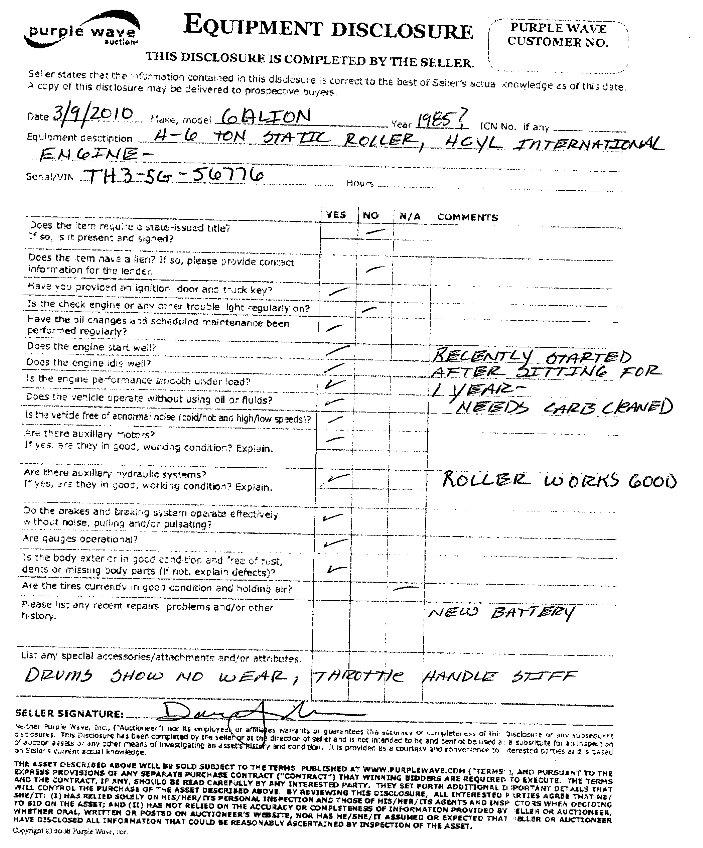 purple wave
auction
EQUIPMENT DISCLOSURE
PURPLE WAVE
CUSTOMER NO.
THIS DISCLOSURE IS COMPLETED BY THE SELLER.
Seller states that the information contained in this disclosure is correct to the best of Seller's actual knowledge as of this date.
A copy of this disclosure may be delivered to prospective buyers.
Date 3/9/2010 Make, model GALION Year 1985? ICN No. if any
Equipment description 4-6 TON STATIC ROLLER, 4CYL INTERNATIONAL
ENGINE-
Serial/VIN TH3-SG-56776 Hours
YES NO N/A COMMENTS
Does the item require a state-issued title?
If so, is it present and signed?
Does the item have a lien? If so, please provide contact
information for the lender.
Have you provided an ignition, door and truck key?
Is the check engine or any other trouble light regularly on?
Have the oil changes and scheduled maintenance been
performed regularly?
Does the engine start well?
RECENTLY STARTED
Does the engine idle well?
AFTER SITTING FOR
Is the engine performance smooth under load?
1 YEAR-
Does the vehicle operate without using oil or fluids?
NEEDS CARB CLEANED
Is the vehicle free of abnormal noise (cold/hot and high/low speeds)?
Are there auxiliary motors?
If yes, are they in good, working condition? Explain.
Are there auxiliary hydraulic systems?
If yes, are they in good, working condition? Explain.
ROLLER WORKS GOOD
Do the brakes and braking system operate effectively
without noise, pulling and/or pulsating?
Are gauges operational?
Is the body exterior in good condition and free of rust,
dents or missing body parts (if not, explain defects)?
Are the tires currently in good condition and holding air?
Please list any recent repairs, problems and/or other
history.
NEW BATTERY
List any special accessories/attachments and/or attributes.
DRUMS SHOW NO WEAR, THROTTLE HANDLE STIFF
SELLER SIGNATURE:
Neither Purple Wave, Inc. ("Auctioneer") nor its employees or affiliates warrants or guarantees the accuracy or completeness of this Disclosure or any subsequent
disclosures. This Disclosure has been completed by the seller or at the direction of seller and is not intended to be and cannot be used as a substitute for an inspection
of auction assets or any other means of investigating an asset's history and condition. It is provided as a courtesy and convenience to interested parties and is based
on Seller's current actual knowledge.
THE ASSET DESCRIBED ABOVE WILL BE SOLD SUBJECT TO THE TERMS PUBLISHED AT WWW.PURPLEWAVE.COM ("TERMS"), AND PURSUANT TO THE
EXPRESS PROVISIONS OF ANY SEPARATE PURCHASE CONTRACT ("CONTRACT") THAT WINNING BIDDERS ARE REQUIRED TO EXECUTE. THE TERMS
AND THE CONTRACT, IF ANY, SHOULD BE READ CAREFULLY BY ANY INTERESTED PARTY. THEY SET FORTH ADDITIONAL IMPORTANT DETAILS THAT
WILL CONTROL THE PURCHASE OF THE ASSET DESCRIBED ABOVE. BY REVIEWING THIS DISCLOSURE, ALL INTERESTED PARTIES AGREE THAT HE/
SHE/IT: (I) HAS RELIED SOLELY ON HIS/HER/ITS PERSONAL INSPECTION AND THOSE OF HIS/HER/ITS AGENTS AND INSPECTORS WHEN DECIDING
TO BID ON THE ASSET; AND (II) HAS NOT RELIED ON THE ACCURACY OR COMPLETENESS OF INFORMATION PROVIDED BY SELLER OR AUCTIONEER,
WHETHER ORAL, WRITTEN OR POSTED ON AUCTIONEER'S WEBSITE, NOR HAS HE/SHE/IT ASSUMED OR EXPECTED THAT SELLER OR AUCTIONEER
HAVE DISCLOSED ALL INFORMATION THAT COULD BE REASONABLY ASCERTAINED BY INSPECTION OF THE ASSET.
Copyright © 2008 Purple Wave, Inc.